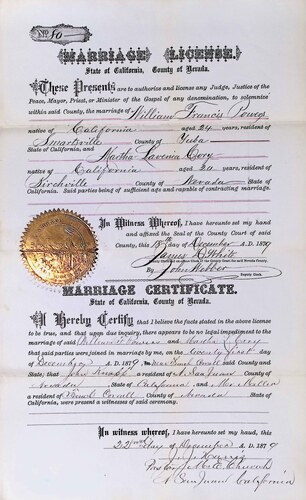 No. 80
MARRIAGE LICENSE.
State of California, County of Nevada.
These Presents are to authorize and license any Judge, Justice of the
Peace, Mayor, Priest, or Minister of the Gospel of any denomination, to solemnize
within said County, the marriage of William Francis Power
native of California aged 24 years, resident of
Smartsville County of Yuba
State of California, and Martha Lavenia Cory
native of California aged 20 years, resident of
Birchville County of Nevada State of
California. Said parties being of sufficient age and capable of contracting marriage.
In Witness Whereof, I have hereunto set my hand
and affixed the Seal of the County Court of said
County, this 18th day of December A. D. 1879
James D. White
By John Webber
Deputy Clerk.
MARRIAGE CERTIFICATE.
State of California, County of Nevada.
I Hereby Certify that I believe the facts stated in the above license
to be true, and that upon due inquiry, there appears to be no legal impediment to the
marriage of said William F Power and Martha L Cory
that said parties were joined in marriage by me, on the twenty first day
of December A. D. 1879 in said County and
State; that John a resident of N. San Juan County of
Nevada State of California, and
a resident of French Corral County of Nevada State of
California, were present as witnesses of said ceremony.
In witness whereof, I have hereunto set my hand, this
22nd day of December A. D. 1879
J. J. Harris
Pastor M. E. Church
N San Juan California